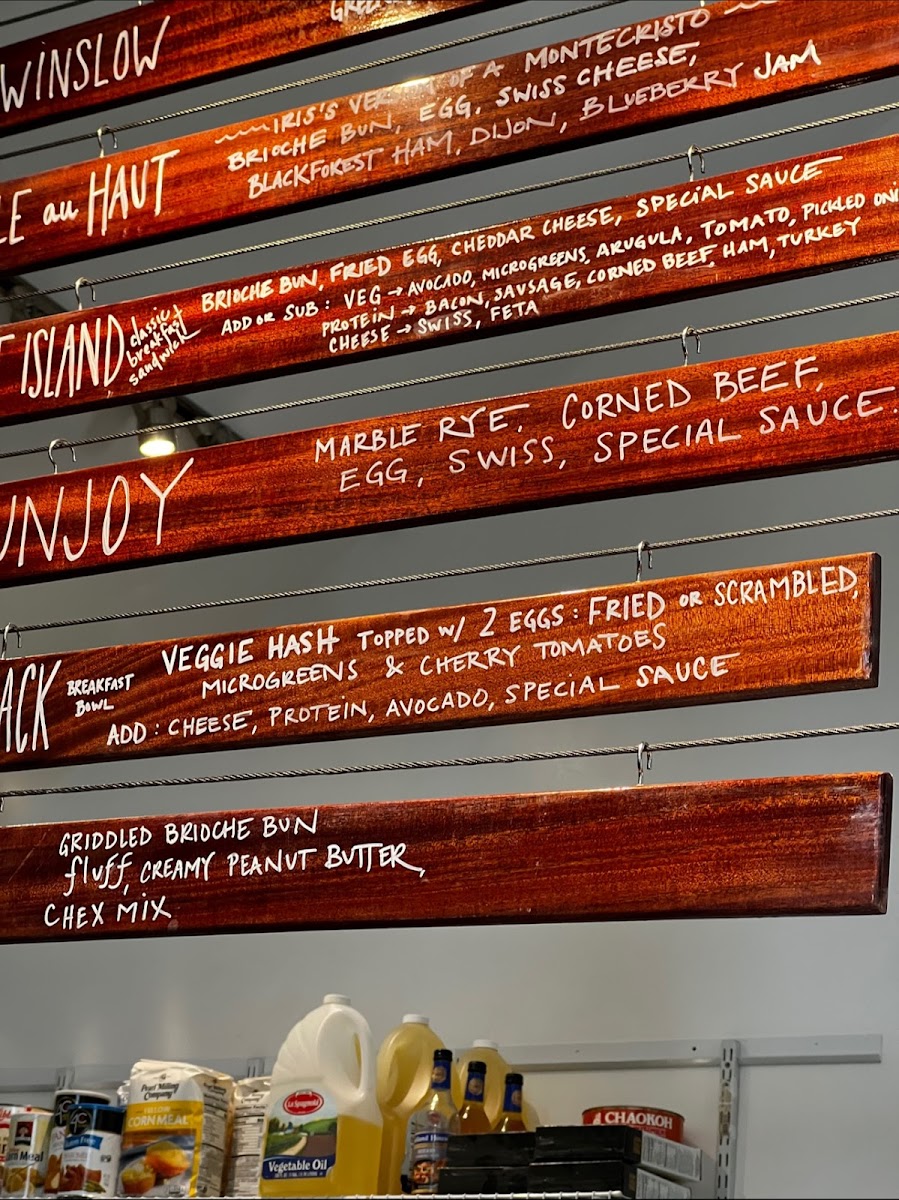 WINSLOW
IRIS'S VERSION OF A MONTECRISTO
BRIOCHE BUN, EGG, SWISS CHEESE,
BLACKFOREST HAM, DIJON, BLUEBERRY JAM
LE au HAUT
BRIOCHE BUN, FRIED EGG, CHEDDAR CHEESE, SPECIAL SAUCE
ADD OR SUB: VEG → AVOCADO, MICROGREENS, ARUGULA, TOMATO, PICKLED ONI
PROTEIN → BACON, SAUSAGE, CORNED BEEF, HAM, TURKEY
CHEESE → SWISS, FETA
ISLAND
classic
breakfast
sandwich
MARBLE RYE. CORNED BEEF,
EGG, SWISS, SPECIAL SAUCE.
UNJOY
VEGGIE HASH TOPPED W/ 2 EGGS: FRIED OR SCRAMBLED,
MICROGREENS & CHERRY TOMATOES
ADD: CHEESE, PROTEIN, AVOCADO, SPECIAL SAUCE
ACK
BREAKFAST
BOWL
GRIDDLED BRIOCHE BUN
fluff, CREAMY PEANUT BUTTER,
CHEX MIX
Pearl Milling
Company
YELLOW
CORN MEAL
La Spagnola
Vegetable Oil
CHAOKOH